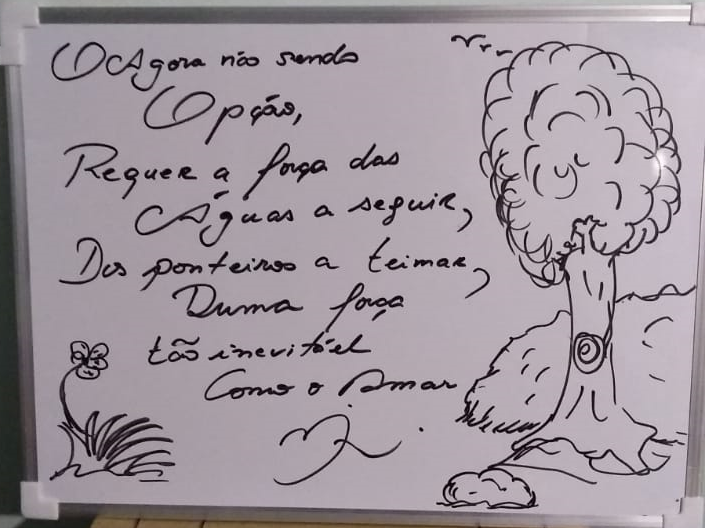 O Agora não sendo
Opção,
Requer a força das
Águas a seguir,
Dos ponteiros a teimar,
Duma força
tão inevitável
Como o Amar